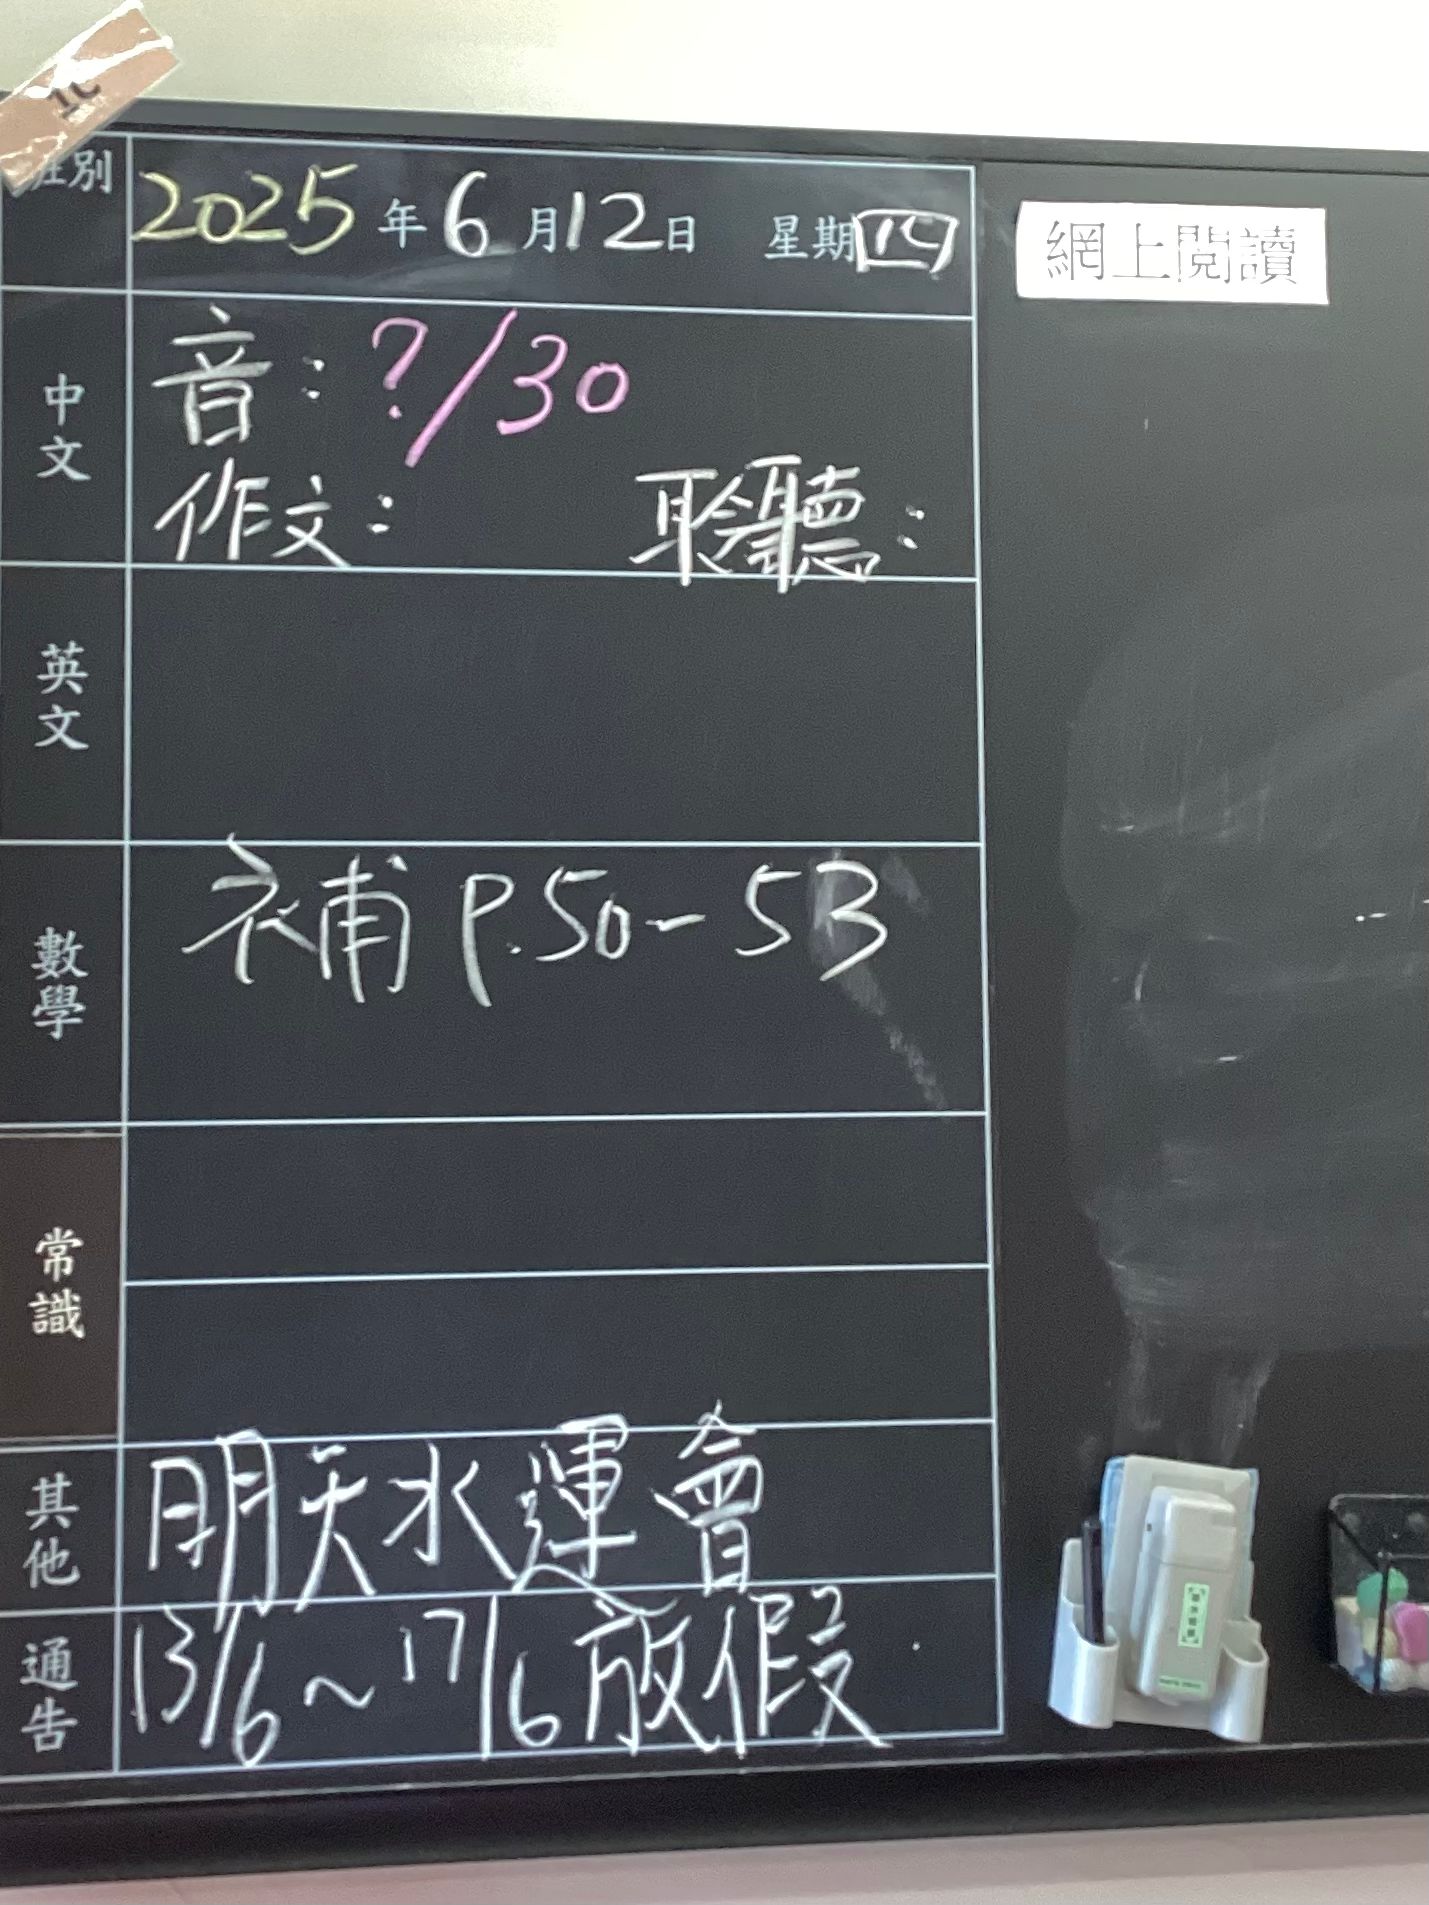 1C
班別
2025年6月12日 星期四
網上閱讀
中文
音：?/30
作文： 聆聽：
英文
數學
補 P.50-53
常識
其他
明天水運會
通告
13/6～17/6放假